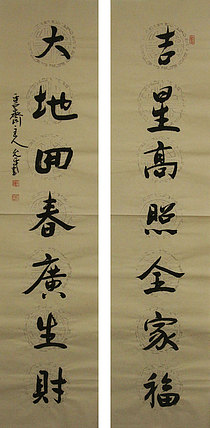 吉星高照全家福
大地回春廣生財